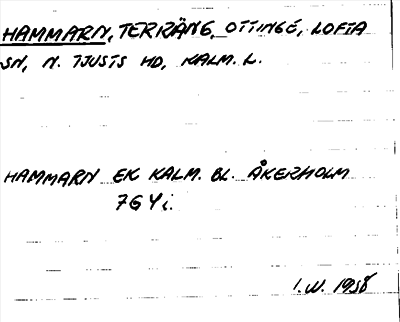 HAMMARN, TERRÄNG, OTTINGE, LOFTA
SN, N. TJUSTS HD, KALM. L.
HAMMARN EK KALM. BL. ÅKERHOLM
7G4i.
I.W. 1958